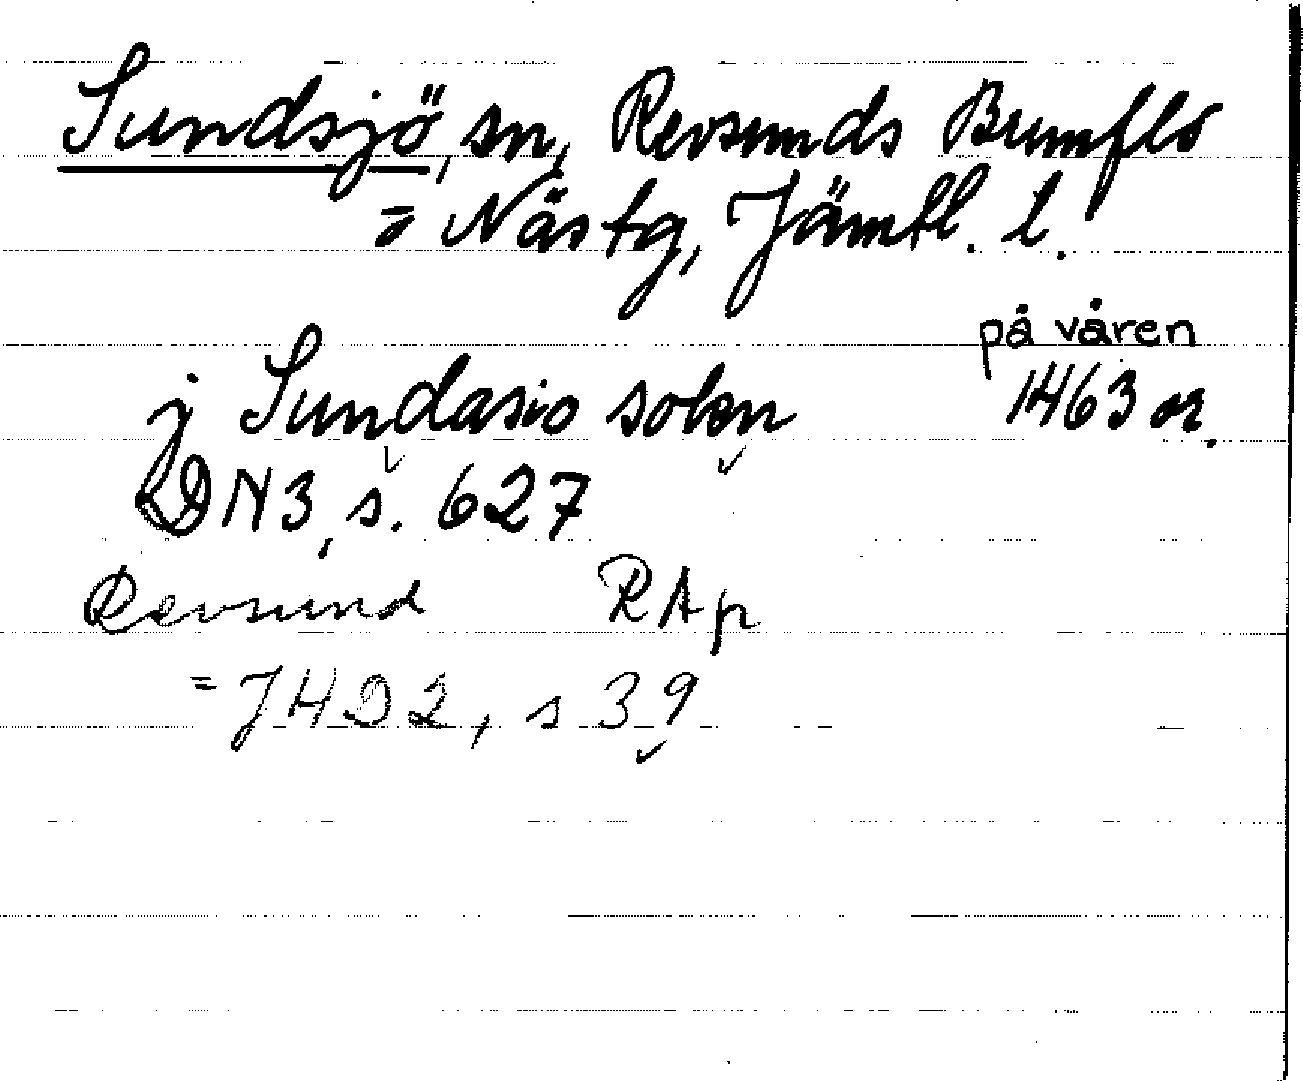 Sundsjö, sn, Revsunds Brunflo
= Näs tg, Jämtl. l.
på våren
j Sundasio sokn 1463 or.
DN3, s. 627
Revsund RAp
= JHD2, s 39